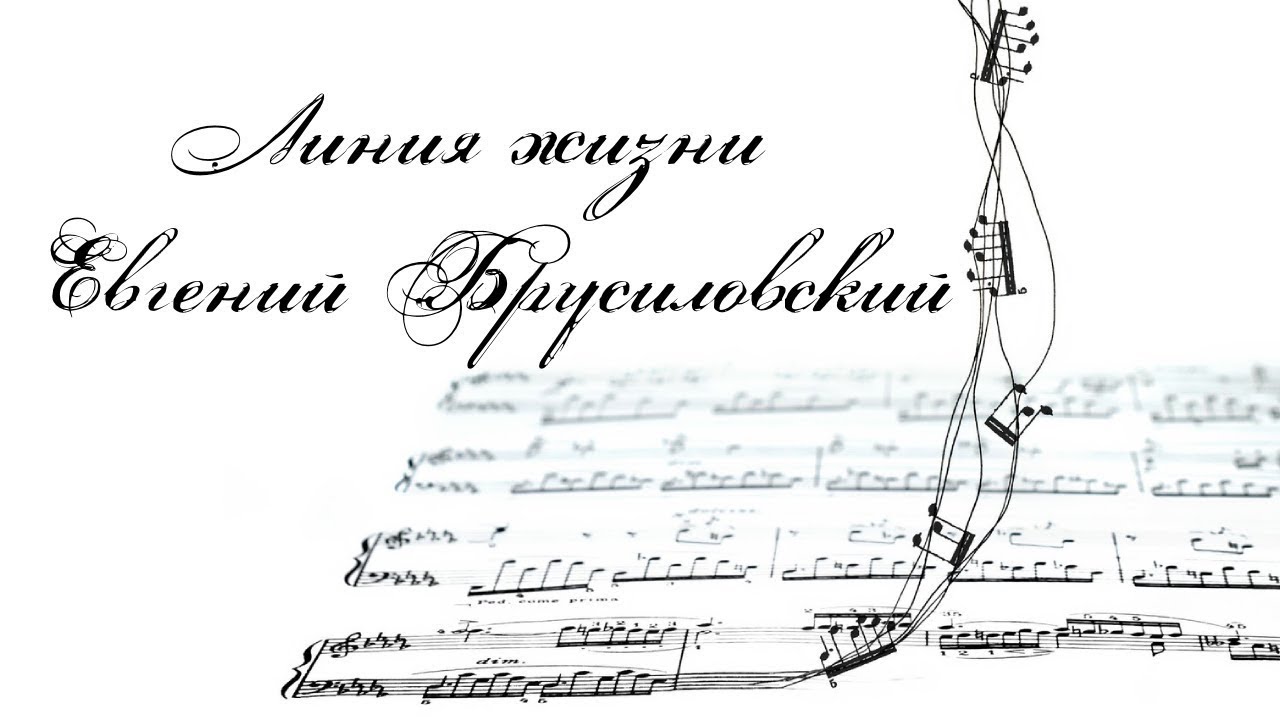 Линия жизни
Евгений Брусиловский
Ped. come prima
dim.